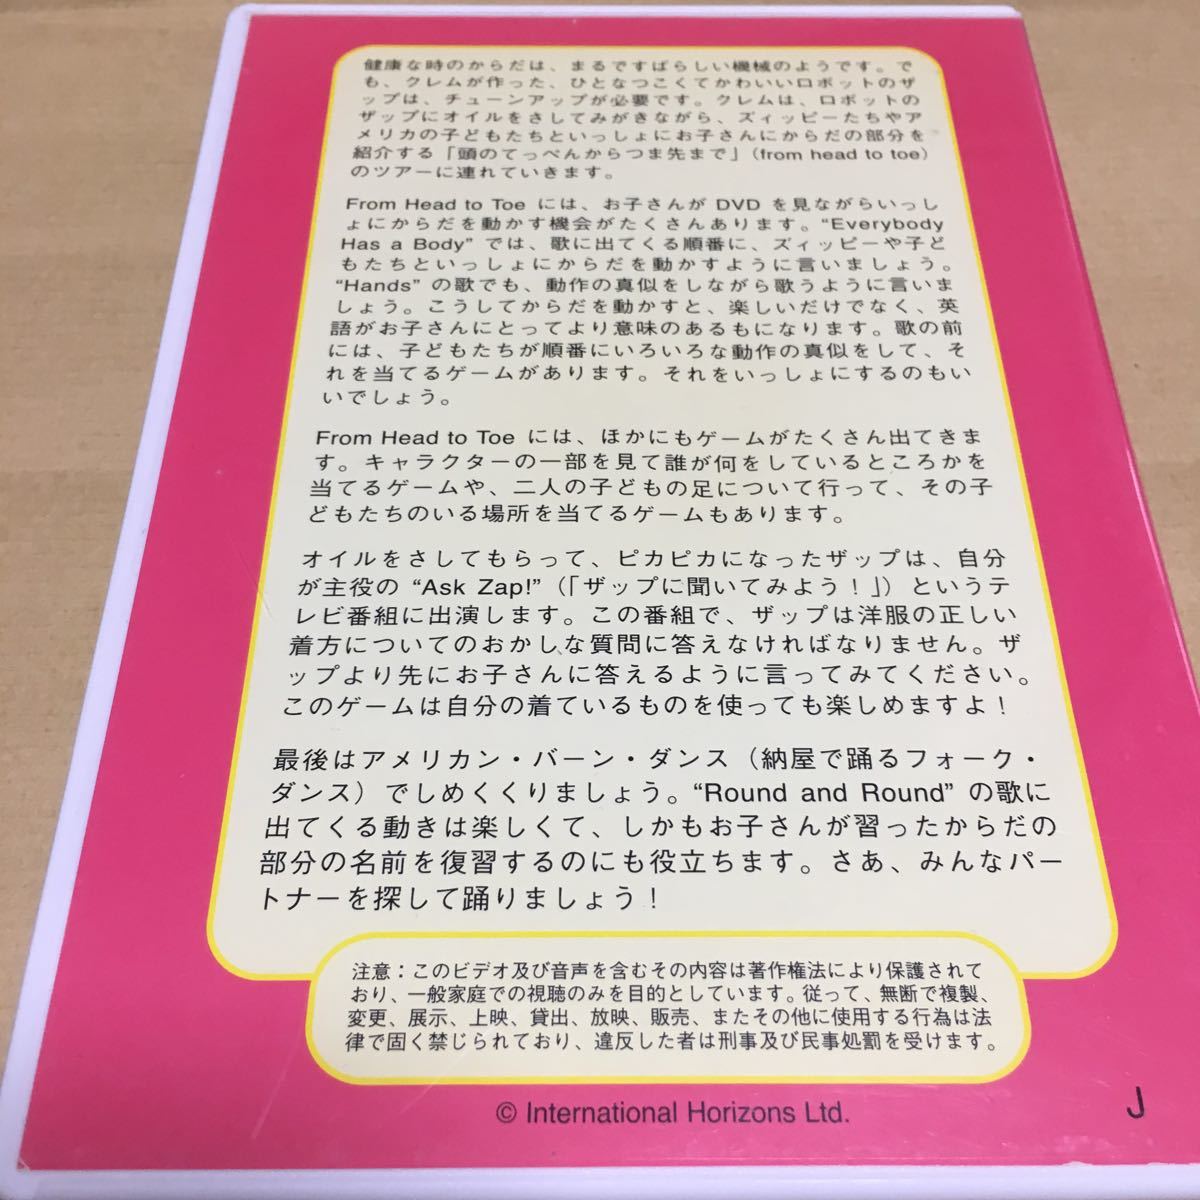 健康な時のからだは、まるですばらしい機械のようです。で
も、クレムが作った、ひとなつこくてかわいいロボットのザ
ップは、チューンアップが必要です。クレムは、ロボットの
ザップにオイルをさしてみがきながら、ズィッピーたちやア
メリカの子どもたちといっしょにお子さんにからだの部分を
紹介する「頭のてっぺんからつま先まで」（from head to toe）
のツアーに連れていきます。
From Head to Toe には、お子さんが DVD を見ながらいっし
ょにからだを動かす機会がたくさんあります。“Everybody
Has a Body” では、歌に出てくる順番に、ズィッピーや子ど
もたちといっしょにからだを動かすように言いましょう。
“Hands” の歌でも、動作の真似をしながら歌うように言いま
しょう。こうしてからだを動かすと、楽しいだけでなく、英
語がお子さんにとってより意味のあるもになります。歌の前
には、子どもたちが順番にいろいろな動作の真似をして、そ
れを当てるゲームがあります。それをいっしょにするのもい
いでしょう。
From Head to Toe には、ほかにもゲームがたくさん出てきま
す。キャラクターの一部を見て誰が何をしているところかを
当てるゲームや、二人の子どもの足について行って、その子
どもたちのいる場所を当てるゲームもあります。
オイルをさしてもらって、ピカピカになったザップは、自分
が主役の “Ask Zap!”（「ザップに聞いてみよう！」）というテ
レビ番組に出演します。この番組で、ザップは洋服の正しい
着方についてのおかしな質問に答えなければなりません。ザ
ップより先にお子さんに答えるように言ってみてください。
このゲームは自分の着ているものを使っても楽しめますよ！
最後はアメリカン・バーン・ダンス（納屋で踊るフォーク・
ダンス）でしめくくりましょう。“Round and Round” の歌に
出てくる動きは楽しくて、しかもお子さんが習ったからだの
部分の名前を復習するのにも役立ちます。さあ、みんなパー
トナーを探して踊りましょう！
注意：このビデオ及び音声を含むその内容は著作権法により保護されて
おり、一般家庭での視聴のみを目的としています。従って、無断で複製、
変更、展示、上映、貸出、放映、販売、またその他に使用する行為は法
律で固く禁じられており、違反した者は刑事及び民事処罰を受けます。
© International Horizons Ltd.
J